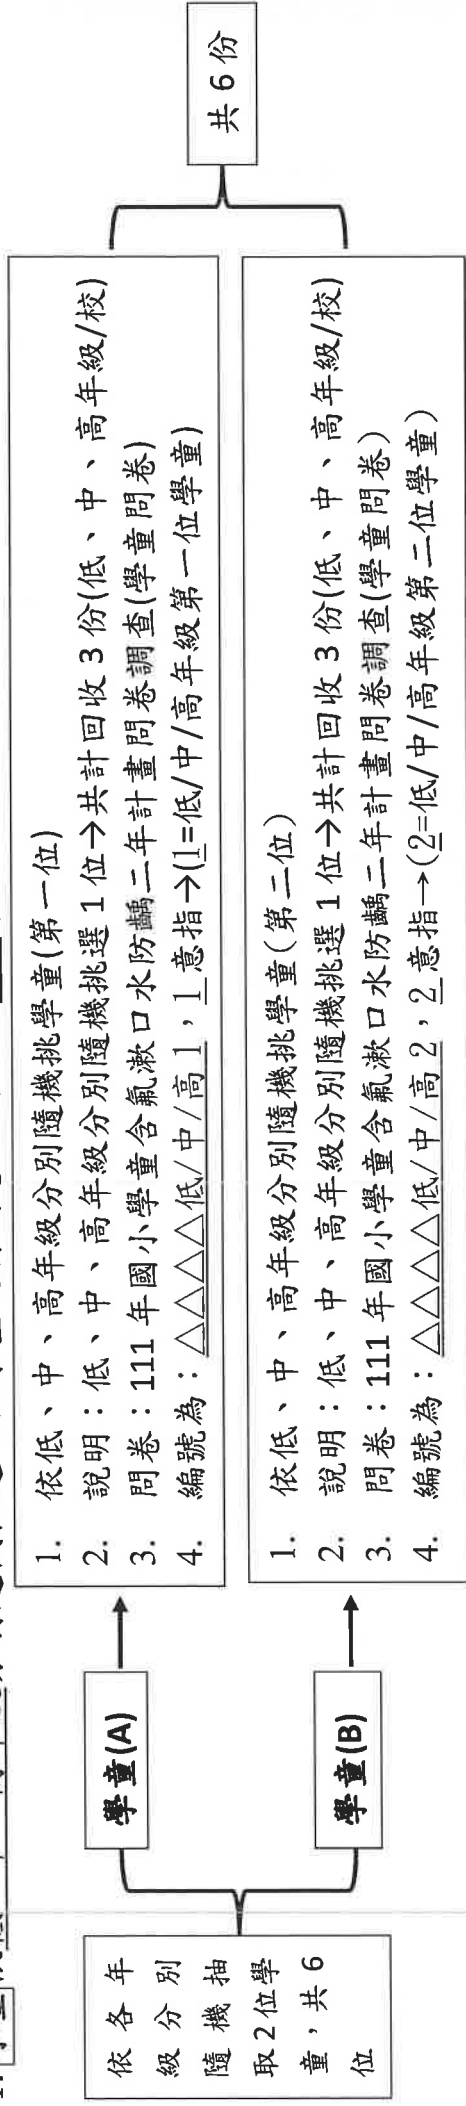 依各年
級分別
隨機抽
取2位學
童，共6
位
學童(A)
1. 依低、中、高年級分別隨機挑學童(第一位)
2. 說明：低、中、高年級分別隨機挑選1位→共計回收3份(低、中、高年級/校)
3. 問卷：111年國小學童含氟漱口水防齲二年計畫問卷調查(學童問卷)
4. 編號為：△△△△△低/中/高1，1意指→(1=低/中/高年級第一位學童)
學童(B)
1. 依低、中、高年級分別隨機挑學童(第二位)
2. 說明：低、中、高年級分別隨機挑選1位→共計回收3份(低、中、高年級/校)
3. 問卷：111年國小學童含氟漱口水防齲二年計畫問卷調查(學童問卷)
4. 編號為：△△△△△低/中/高2，2意指→(2=低/中/高年級第二位學童)
共6份